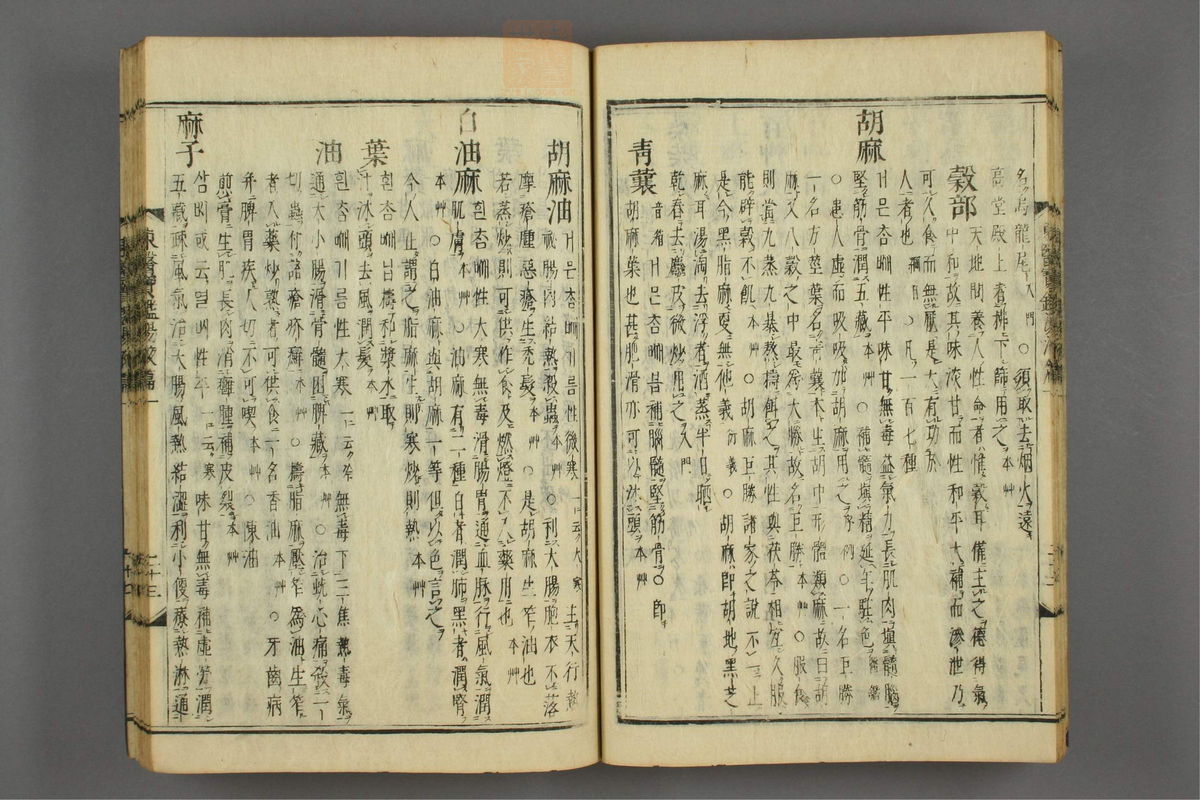 名烏龍尾入門○須取去烟火遠
高堂殿上者拂下篩用之本艸
穀部
天地間養人性命者惟穀耳備土之德得氣
中和故其味淡甘而性和平大補而滲泄乃
可久食而無厭是大有功於
人者也○凡一百七種
胡麻
거믄ᄎᆞᆷᄢᅢ性平味甘無毒益氣力長肌肉塡髓腦
堅筋骨潤五藏本艸○補髓塡精延年駐色醫鑑
○患人虛而吸吸加胡麻用之序例○一名巨勝
一名方莖葉名靑蘘本生胡中形體類麻故曰胡
麻又八穀之中最爲大勝故名巨勝本艸○服食
則當九蒸九暴熬擣餌之其性與茯苓相宜久服
能辟穀不飢本艸○胡麻巨勝諸家之說不一止
是今黑脂麻更無他義衍義○胡麻卽胡地黑芝
麻耳湯淘去浮者酒蒸半日晒
乾舂去麤皮微炒用之入門
靑蘘
音箱거믄ᄎᆞᆷᄢᅢ닙補腦髓堅筋骨○卽
胡麻葉也甚肥滑亦可以沐頭本艸
胡麻油
거믄ᄎᆞᆷᄢᅢ기름性微寒一云大寒主天行熱
祕腸內結熱殺蟲本艸○利大腸胞衣不落
摩瘡腫惡瘡生禿髮本艸○是胡麻生笮油也
若蒸炒則可供作食及燃燈不入藥用也本艸
白油麻
ᄒᆡᆫᄎᆞᆷᄢᅢ性大寒無毒滑腸胃通血脉行風氣潤
肌膚本艸○油麻有二種白者潤肺黑者潤腎
本艸○白油麻與胡麻一等但以色言之
今人止謂之脂麻生則寒炒則熱本艸
葉
ᄒᆡᆫᄎᆞᆷᄢᅢ닙擣和漿水取
汁沐頭去風潤髮本艸
油
ᄒᆡᆫᄎᆞᆷᄢᅢ기름性大寒一云冷無毒下三焦熱毒氣
通大小腸滑骨髓困脾藏本艸○治蚘心痛殺一
切蟲付諸瘡疥癬本艸○擣脂麻壓笮爲油生笮
者入藥炒熟者可供食一名香油本艸○牙齒病
幷脾胃疾人切不可喫本艸○陳油
煎膏生肌長肉消癰腫補皮裂本艸
麻子
삼ᄡᅵ或云열ᄡᅵ性平一云寒味甘無毒補虛勞潤
五藏疎風氣治大腸風熱結澁利小便療熱淋通